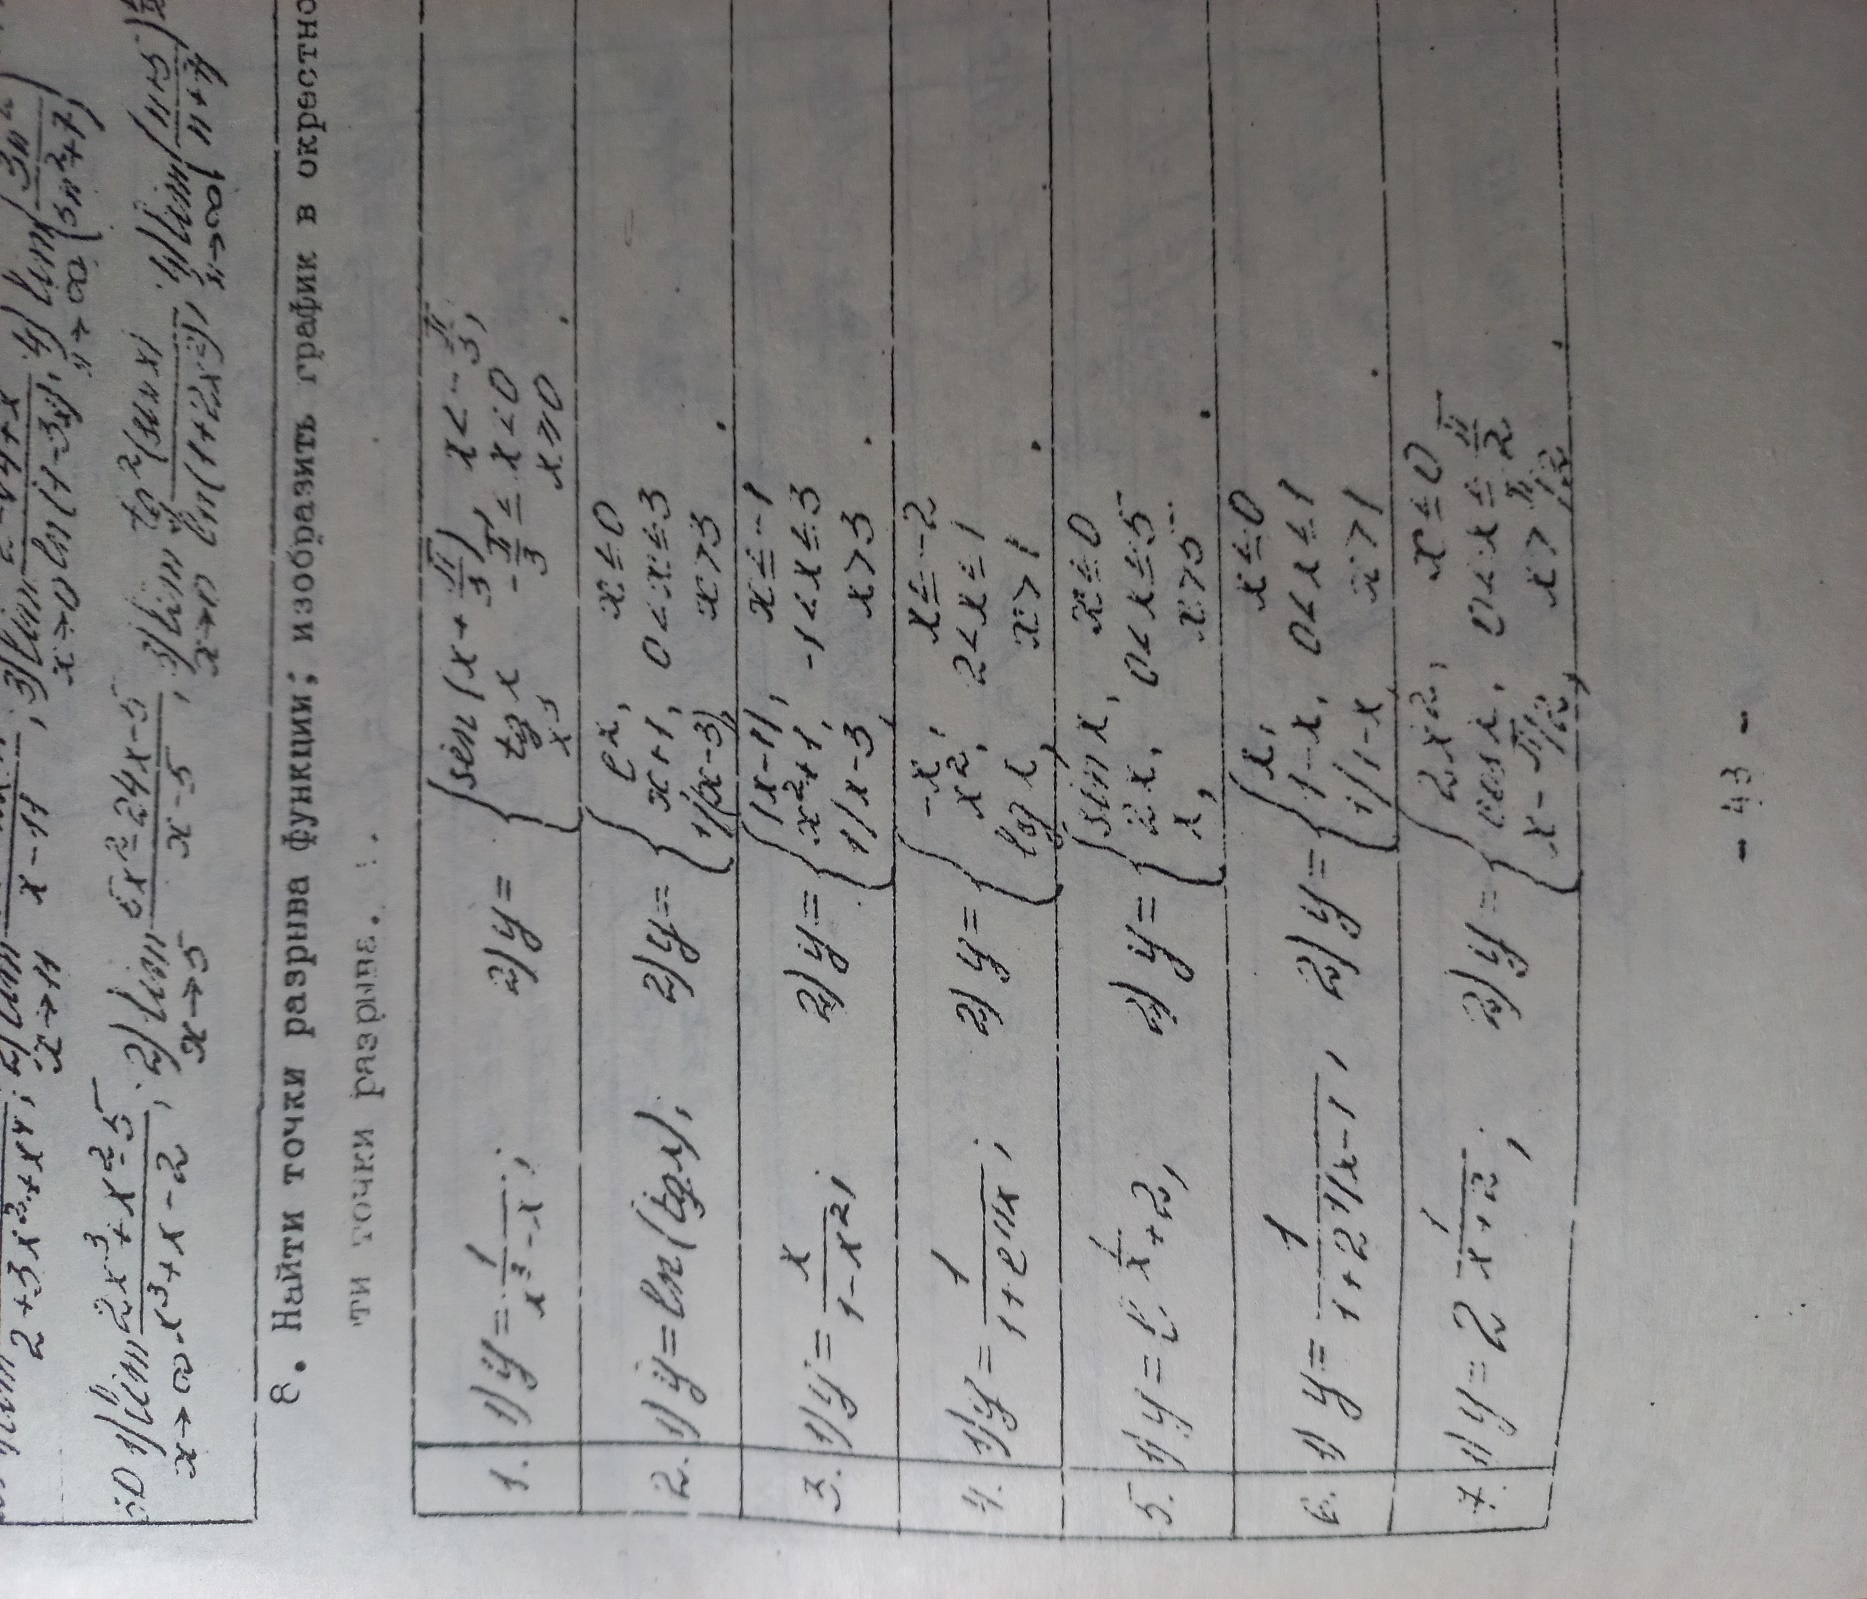 2+3x²+x⁴
x→11 x-11
x→0 ln(1-3x)
n→∞ (3n²+7)
50 1) lim 2x³+x²-5 ; 2) lim 5x²-24x-5 , 3) lim tg²(sin x) ; 4) lim (n+5)
x→∞ x³+x-2 x→5 x-5 x→0 ln(1+2x²) n→∞ (n+7)
8. Найти точки разрыва функции; изобразить график в окрестно
ти точки разрыва.
1. 1) y = 1/(x³-x) ; 2) y = { sin(x+π/3), x<-π/3,
tg x -π/3≤x<0
x³, x≥0.
2. 1) y=ln(tg x); 2) y= { eˣ, x≤0
x+1, 0<x≤3
1/(x-3), x>3.
3. 1) y= x/(1-x²); 2) y= { |x-1|, x≤-1
x²+1, -1<x≤3
1/x-3, x>3.
4. 1) y= 1/(1+e^(1/x)); 2) y= { -x, x≤-2
x², 2<x≤1
lg x, x>1.
5. 1) y= e^(1/x)+2, 2) y= { sin x, x≤0
2x, 0<x≤5
x, x>5.
6. 1) y= 1/(1+2^(1/x-1)), 2) y= { x, x≤0
1-x, 0<x≤1
1/1-x, x>1.
7. 1) y=2^(1/(x+2)); 2) y= { 2x², x≤0
cos x, 0<x≤π/2
x-π/2, x>π/2.
- 43 -